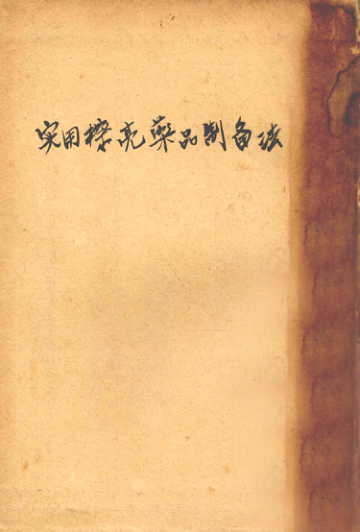 实用擦亮药品制备法